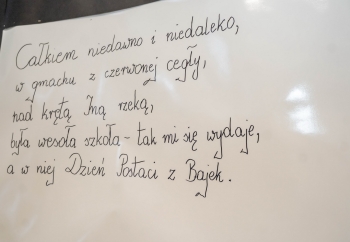 Całkiem niedawno i niedaleko,
w gmachu z czerwonej cegły,
nad krętą Iną rzeką,
była wesoła szkoła - tak mi się wydaje,
a w niej Dzień Postaci z Bajek.